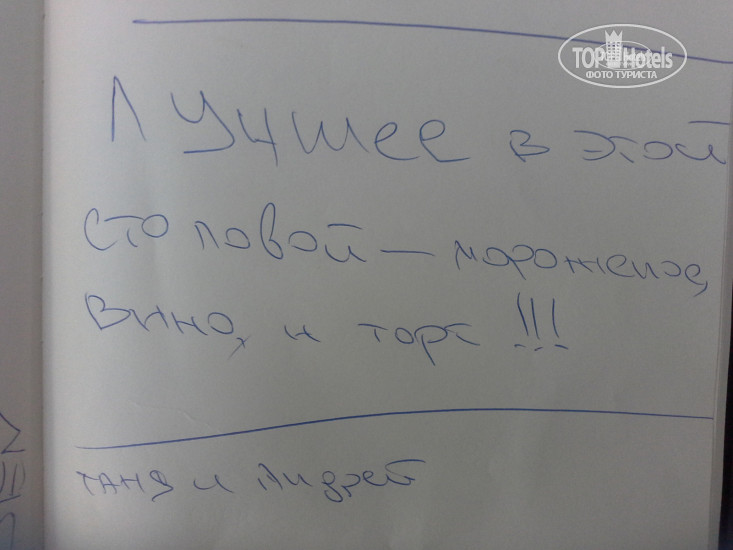 TOPHotels
ФОТО ТУРИСТА
Лучшее в этой
столовой — мороженое,
вино, и торт!!!
Таня и Андрей